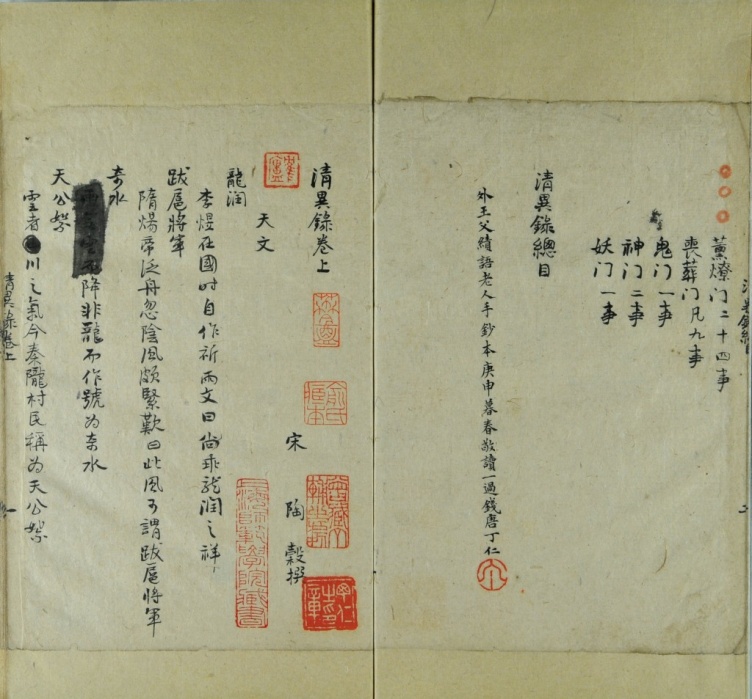 薰燎门二十四事
喪葬门凡九事
鬼门一事
神门二事
妖门一事
清異錄總目
外王父績語老人手鈔本庚申暮春敬讀一過錢唐丁仁
清異錄卷上
宋 陶穀撰
天文
龍润
李煜在國时自作祈雨文曰尚乖龙润之祥
跋扈將軍
隋煬帝泛舟忽陰风頗緊歎曰此风可謂跋扈將軍
奇水
降非龍而作號为奇水
天公絮
雲者川之氣今秦隴村民稱为天公絮
清異錄卷上